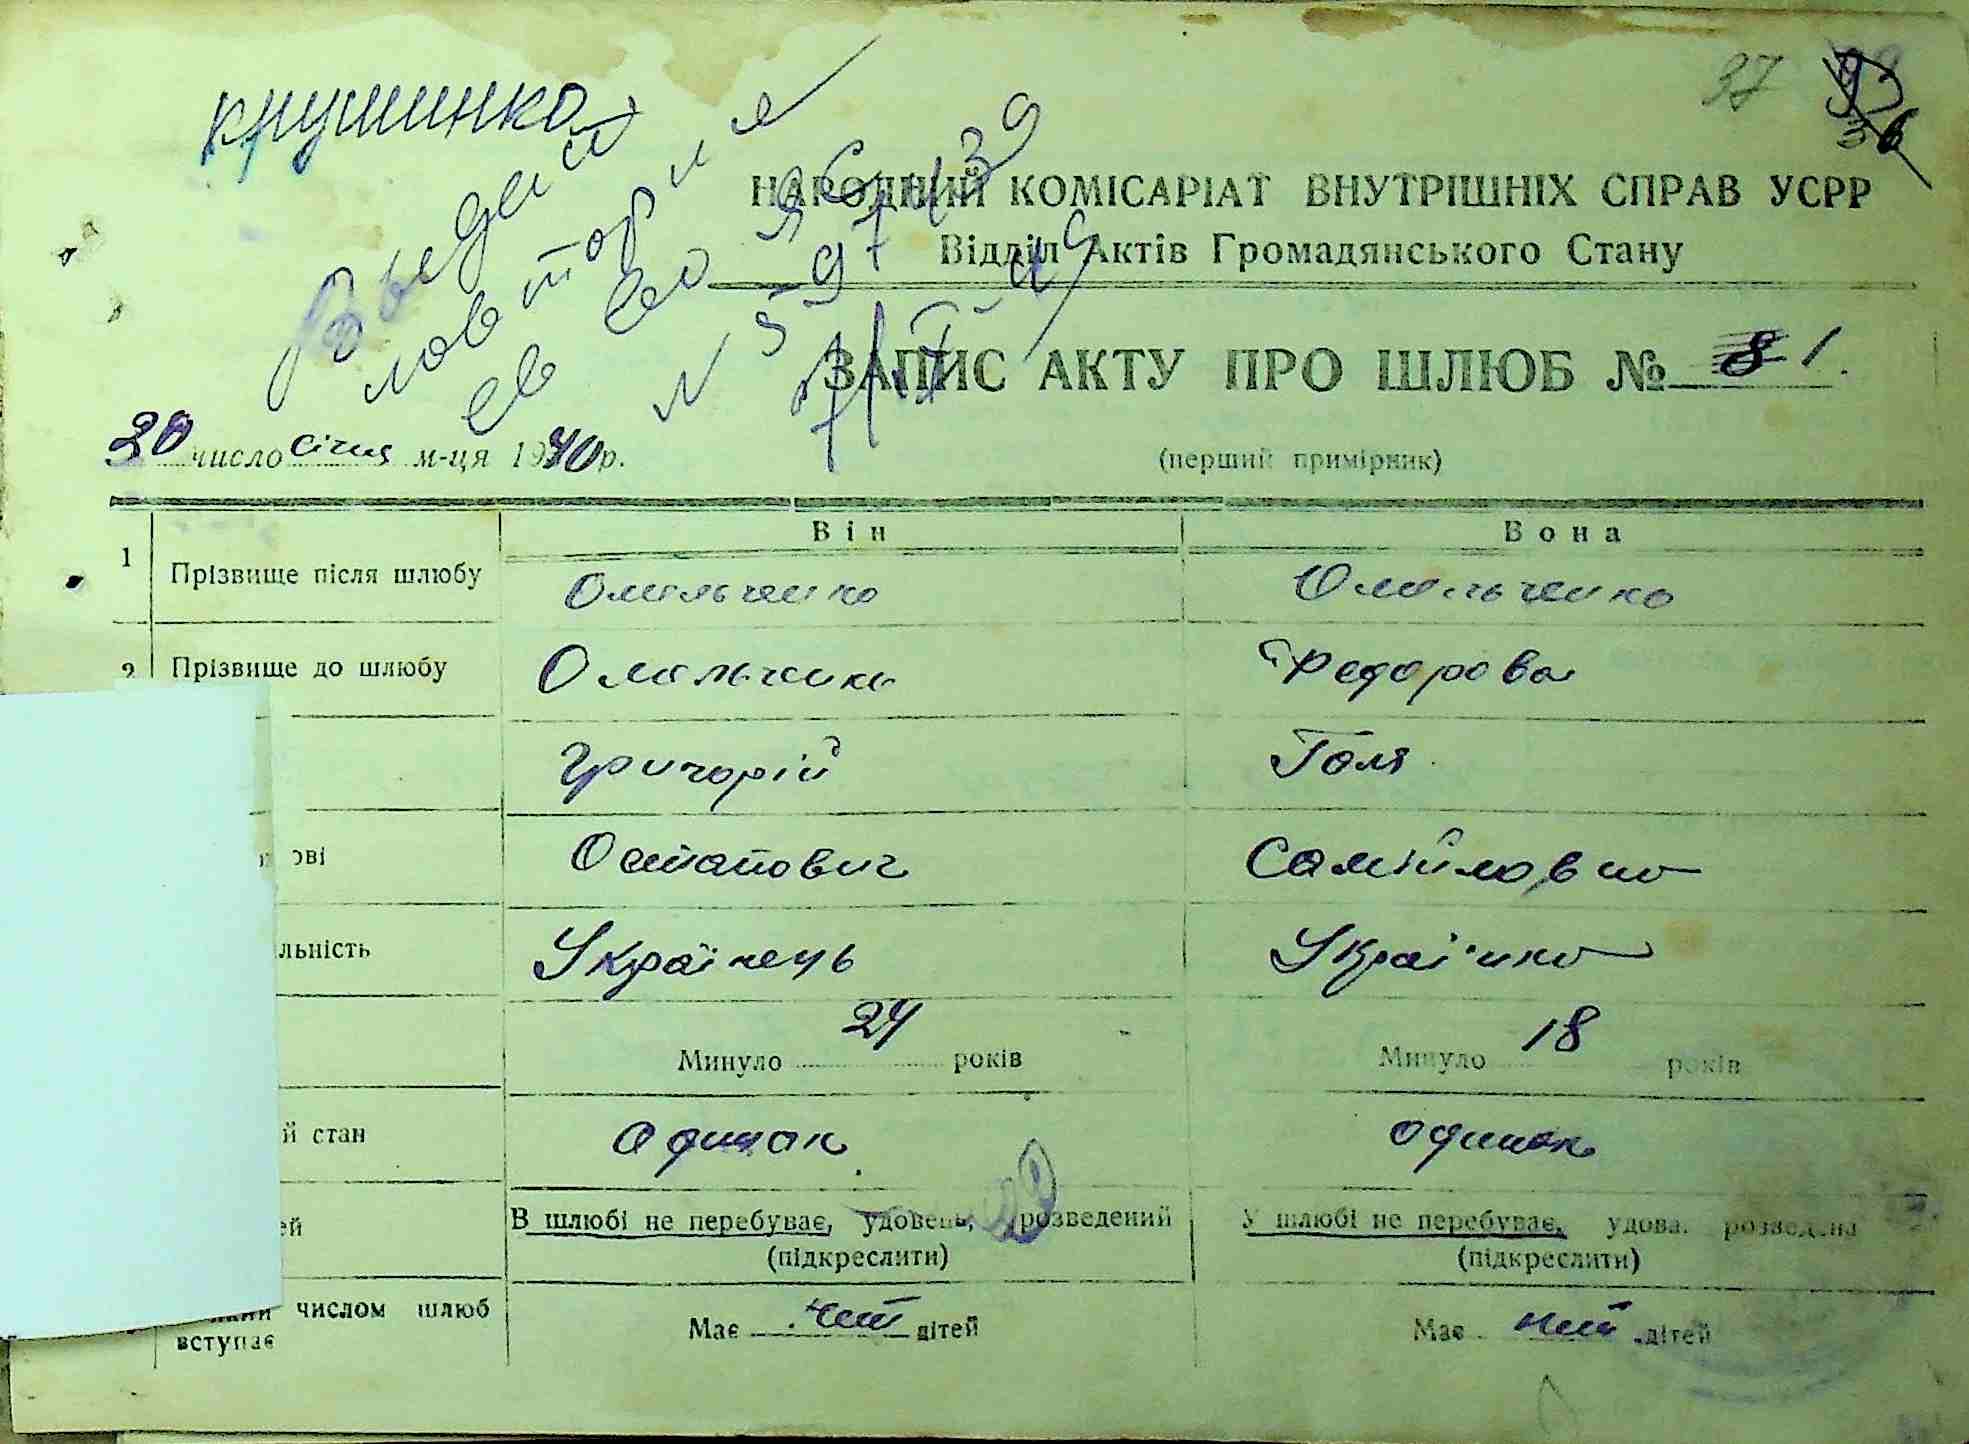 крушинка
37
36
Выдан
повторн
св во
НАРОДНИЙ КОМІСАРІАТ ВНУТРІШНІХ СПРАВ УСРР
Відділ Актів Громадянського Стану
ЗАПИС АКТУ ПРО ШЛЮБ № 1.
30 число січня м-ця 1940 р.
(перший примірник)
Він Вона
1 Прізвище після шлюбу Омельченко Омельченко
2 Прізвище до шлюбу Омельченко Федорова
Григорій Галя
ові Остапович Самійловна
льність Українець Українка
Минуло 24 років Минуло 18 років
й стан одинак одинак
ей В шлюбі не перебуває, удовець, розведений У шлюбі не перебуває, удова. розведена
(підкреслити) (підкреслити)
числом шлюб Має нет дітей Має нет дітей
вступає